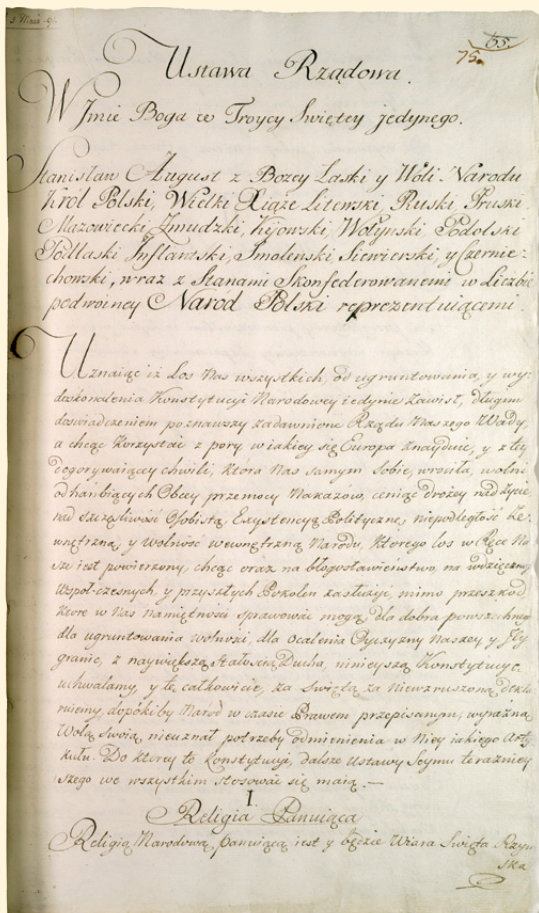 3 Maii 91
65.
75.
Ustawa Rządowa.
W Jmie Boga w Troycy Swiętey jedynego.
Stanisław August z Bozey Łaski y Woli Narodu
Król Polski, Wielki Xiąże Litewski, Ruski, Pruski,
Mazowiecki, Żmudzki, Kijowski, Wołynski, Podolski
Podlaski, Inflantski, Smolenski, Siewierski, y Czernie-
chowski, wraz z Stanami Skonfederowanemi w Liczbie
podwóiney Naród Polski reprezentuiącemi.
Uznaiąc iż Los Nas wszystkich, od ugruntowania, y wy-
doskonalenia Konstytucyi Narodowey iedynie zawisł, długim
doświadczeniem poznawszy zadawnione Rządu Naszego Wady,
a chcąc korzystać z pory w iakiey się Europa znayduie, y z tey
dogorywaiącey chwili, która Nas samym Sobie, wróciła, wolni
od hańbiących Obcey przemocy Nakazów, ceniąc drożey nad życie
nad szczęśliwość Osobistą, Exystencyą Polityczną, niepodległość Ze-
wnętrzną, y wolność wewnętrzną Narodu, którego los w Ręce Na-
sze iest powierzony, chcąc oraz na błogosławieństwo, na wdzięczność
Współczesnych, y przyszłych Pokoleń zasłużyć, mimo przeszkód
które w Nas namiętności sprawować mogą, dla dobra powszechnego
dla ugruntowania wolności, dla ocalenia Oyczyzny Naszey, y Jey
granic, z naywiększą stałością Ducha, ninieyszą Konstytucyę
uchwalamy, y tę całkowicie, za Swiętą, za Niewzruszoną dekla-
ruiemy, dopókiby Naród w czasie Prawem przepisanym, wyraźną
Wolą Swoią nieuznał potrzeby odmienienia w Niey iakiego Arty-
kułu. Do którey to Konstytucyi, dalsze Ustawy Seymu teraźniey-
szego we wszystkim stosować się maią. —
I.
Religia Panuiąca
Religią Narodową panuiącą iest y będzie Wiara Swięta Rzym-
ska